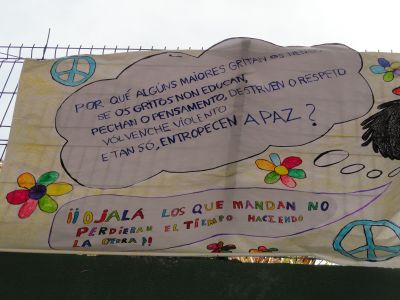 POR QUÉ ALGÚNS MAIORES GRITAN OS NENOS
SE OS GRITOS NON EDUCAN,
PECHAN O PENSAMENTO, DESTRUEN O RESPETO
VÓLVENCHE VIOLENTO
E TAN SÓ, ENTROPECEN A PAZ?
¡¡OJALÁ LOS QUE MANDAN NO
PERDIERAN EL TIEMPO HACIENDO
LA OTRA!!